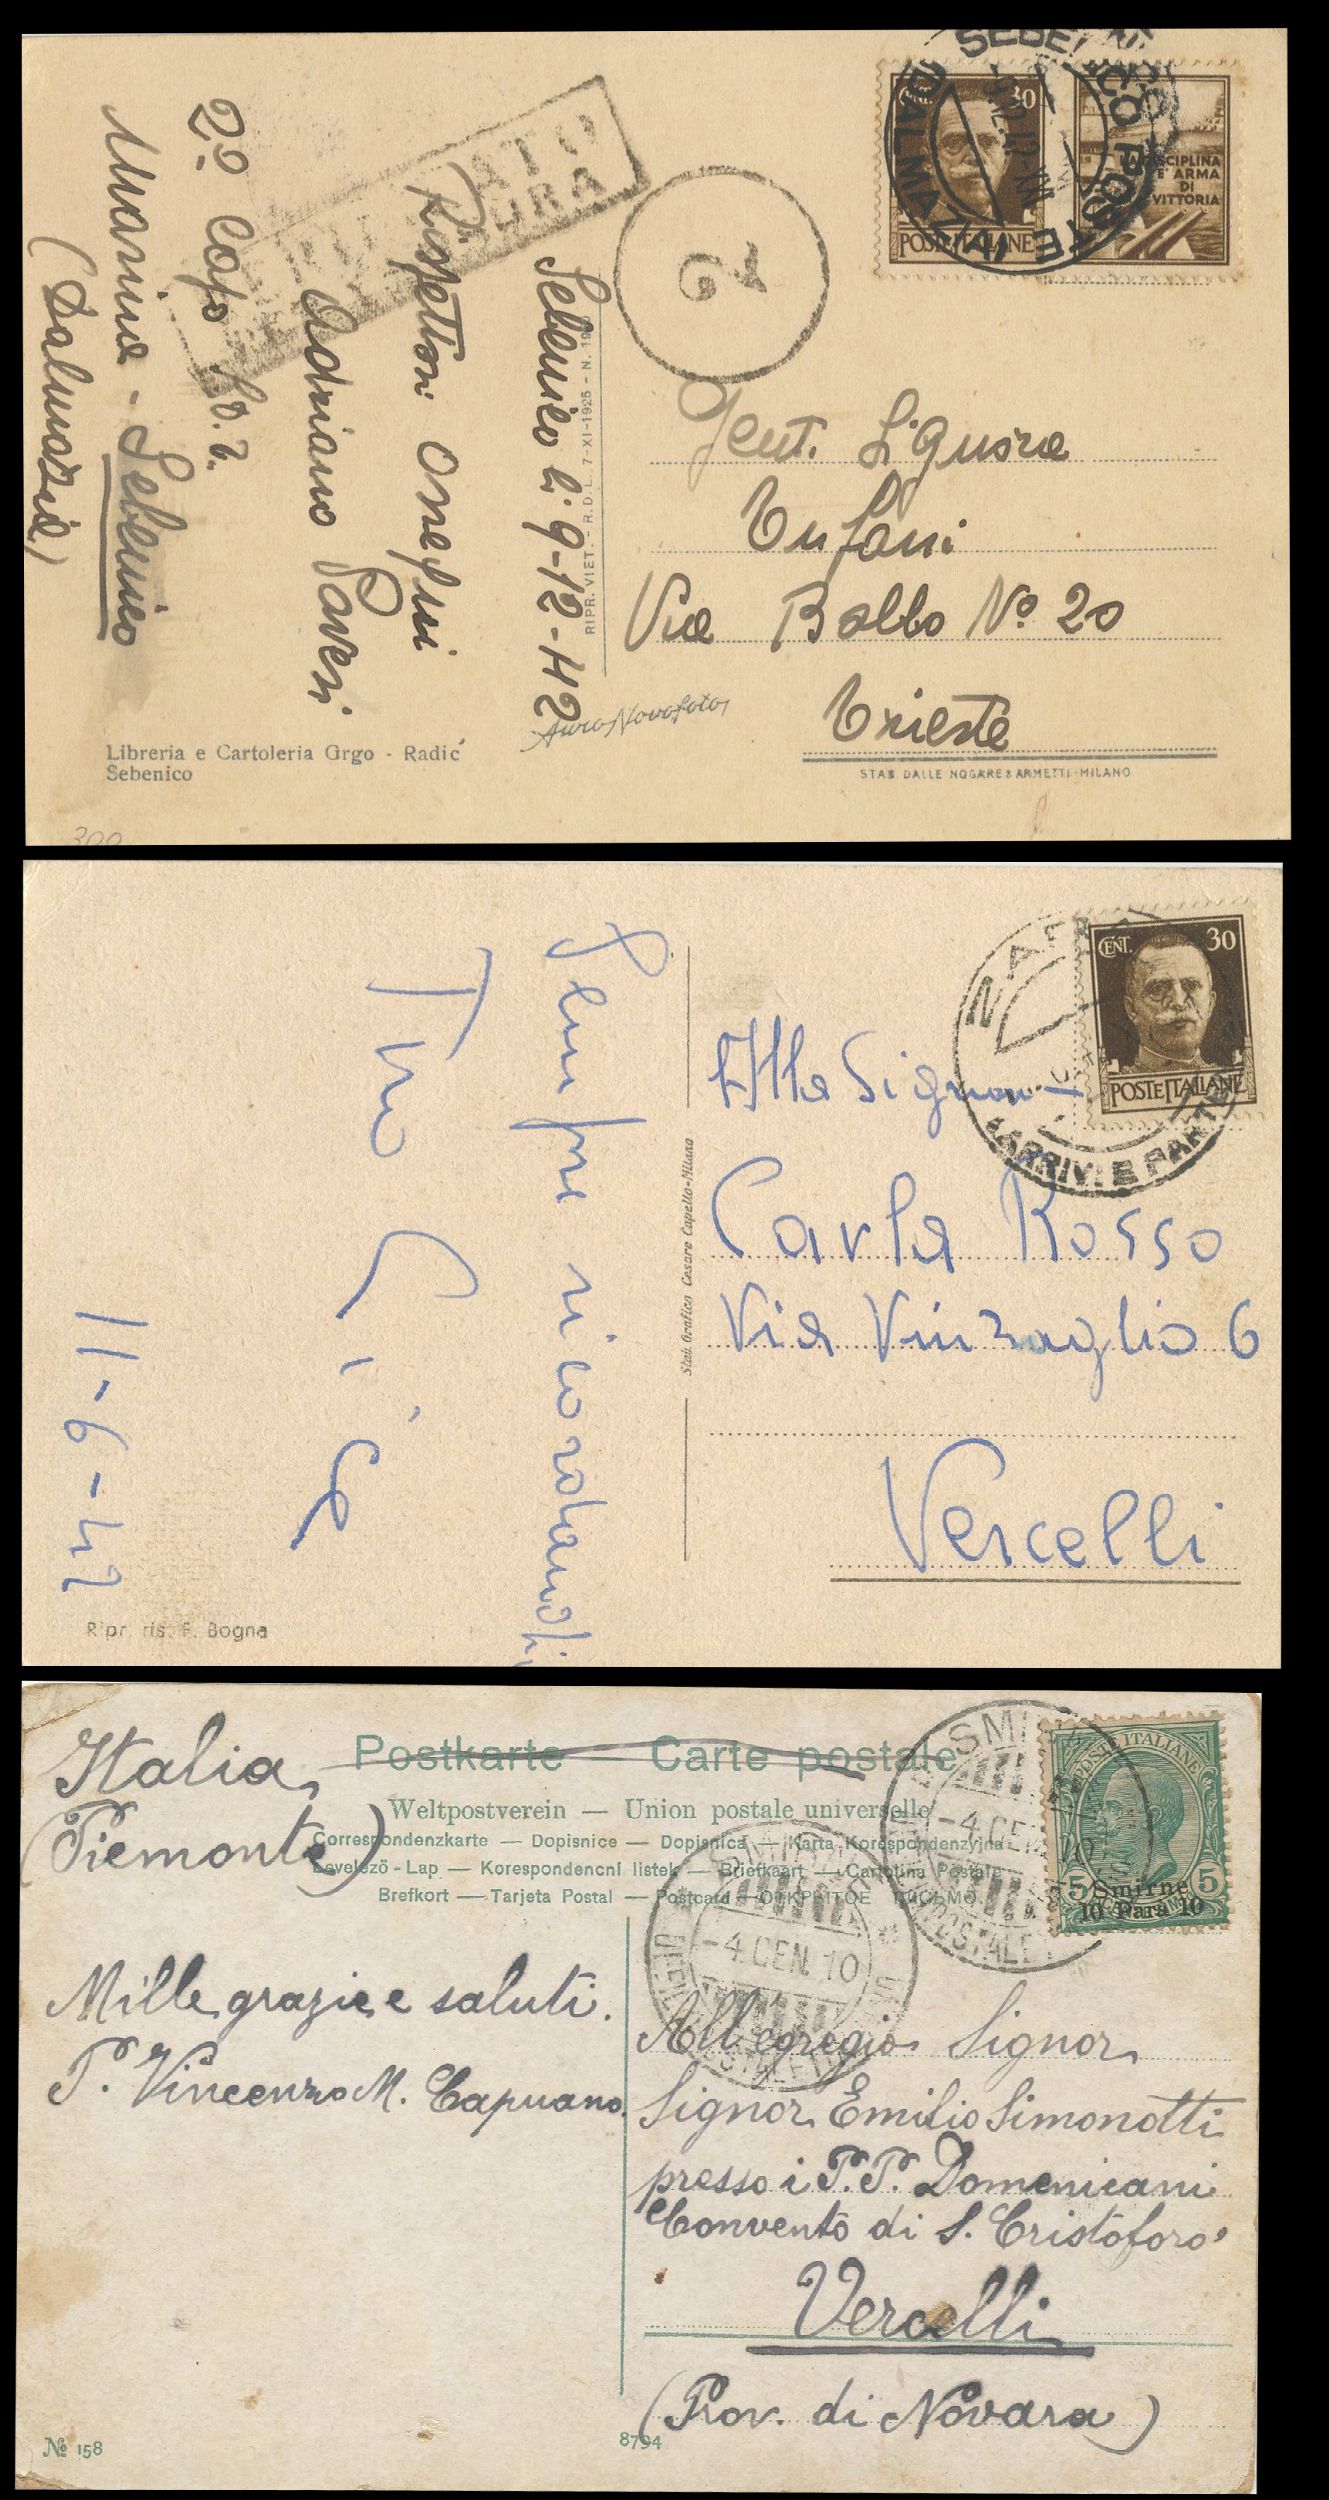 SEBENICO POSTE
(DALMAZIA)
CENT. 30
POSTE ITALIANE
LA DISCIPLINA
E' ARMA
DI
VITTORIA
2
Gent. Signora
Tufani
Via Balbo Nº 20
Trieste
STAB. DALLE NOGARE & ARMETTI - MILANO
RIPR. VIET. - R.D.L. 7-XI-1925 - N. 19
Sebenico li 9-12-42
Rispettosi Ossequi
Adriano Pavesi
2º Capo S.D.T.
Marina - Sebenico
(Dalmazia)
Libreria e Cartoleria Grgo - Radić
Sebenico
300
CENT. 30
POSTE ITALIANE
(ARRIVI E PARTENZE
Alla Signora
Carla Rosso
Via Vinzaglio 6
Vercelli
Stab. Grafico Cesare Capello-Milano
Sempre ricordandoti
Tuo
11-6-42
Ripr. ris. F. Bogna
Italia
(Piemonte)
Postkarte — Carte postale
Weltpostverein — Union postale universelle
Correspondenzkarte — Dopisnice — Dopisnica — Karta Korespondenzyjna
Levelező-Lap — Korespondencní listek — Briefkaart — Cartolina Postale
Brefkort — Tarjeta Postal — Postcard — ОТКРЫТОЕ ПИСЬМО
SMIRNE
-4.GEN.10
SMIRNE
-4.GEN.10
POSTE ITALIANE
5 5
Smirne
10 Para 10
Mille grazie e saluti.
P. Vincenzo M. Capuano.
All'egregio Signor
Signor Emilio Simonotti
presso i P.P. Domenicani
Convento di S. Cristoforo
Vercelli
(Prov. di Novara)
Nº 158
8794